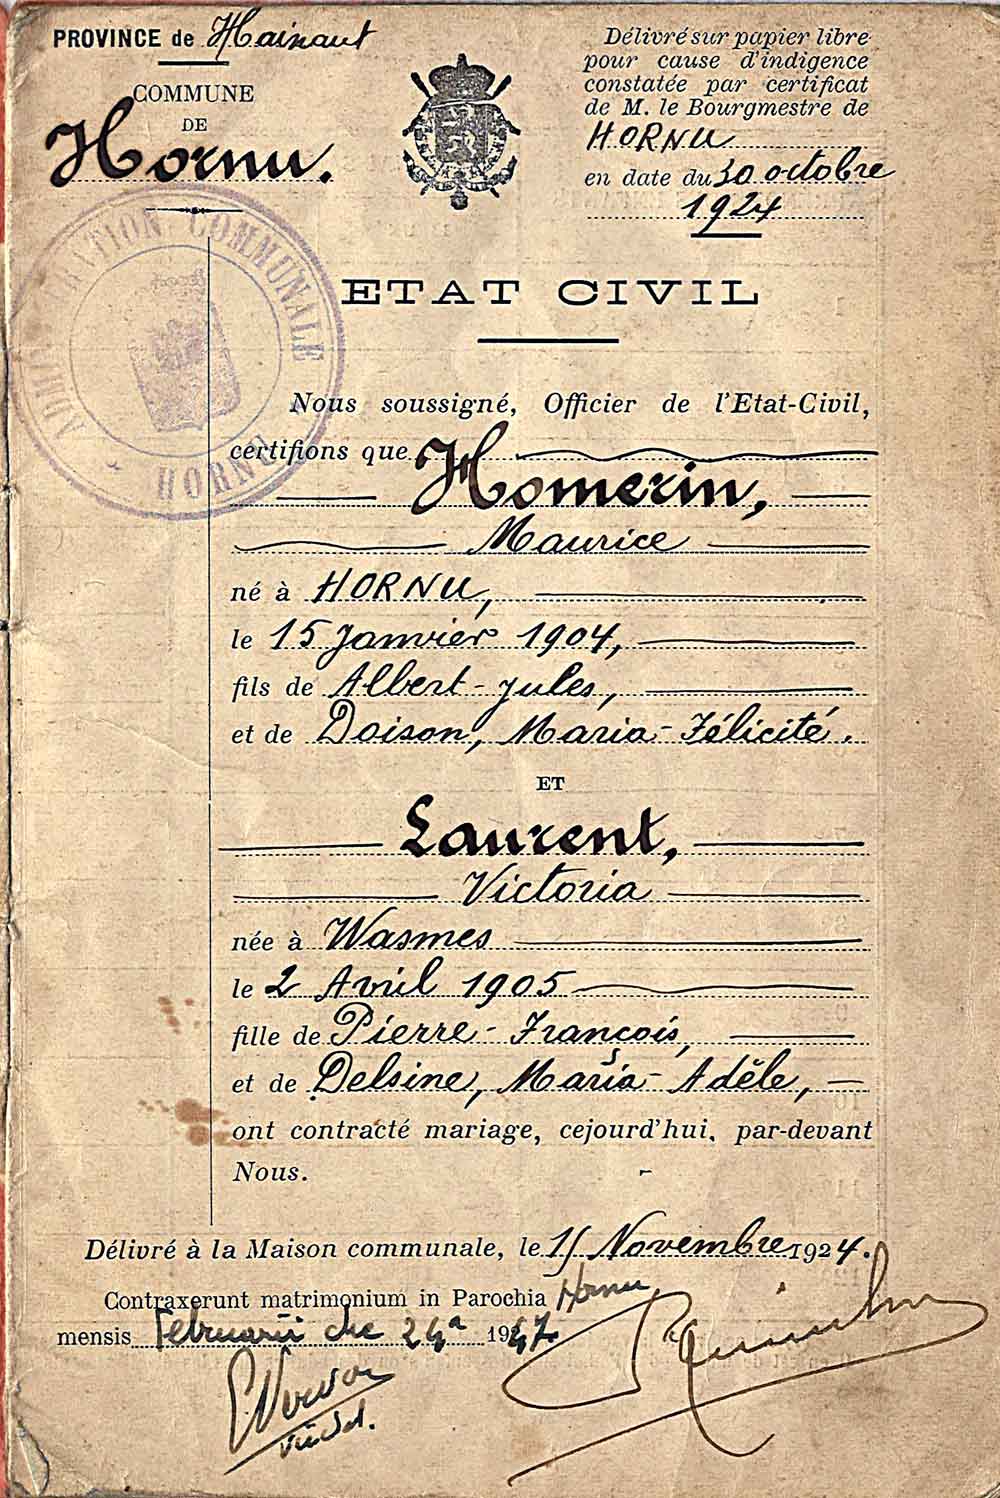 PROVINCE de Hainaut
COMMUNE
DE
Hornu.
Délivré sur papier libre
pour cause d'indigence
constatée par certificat
de M. le Bourgmestre de
HORNU
en date du 30 octobre
1924
ADMINISTRATION COMMUNALE
* HORNU
ETAT CIVIL
Nous soussigné, Officier de l'Etat-Civil,
certifions que
Homerin,
Maurice
né à HORNU,
le 15 Janvier 1904,
fils de Albert-Jules,
et de Doison, Maria-Félicité.
ET
Laurent,
Victoria
née à Wasmes
le 2 Avril 1905
fille de Pierre-François,
et de Delsine, Maria-Adèle,
ont contracté mariage, cejourd'hui, par-devant
Nous.
Délivré à la Maison communale, le 15 Novembre 1924.
Contraxerunt matrimonium in Parochia Hornu
mensis Februarii die 24a 1947